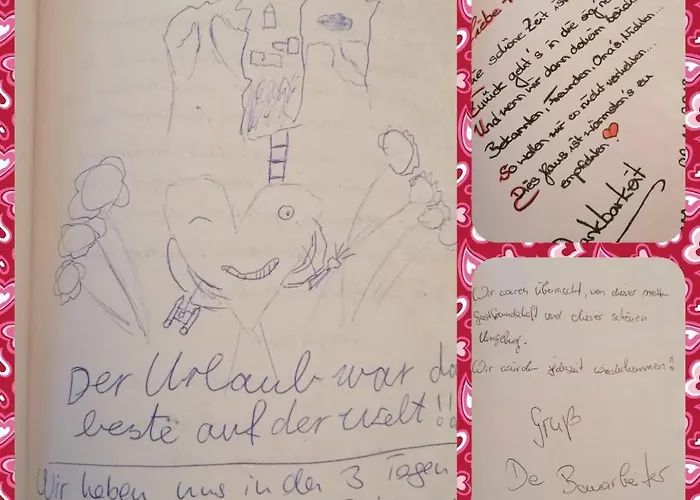 Der Urlaub war da
beste auf der welt!!
Wir haben uns in den 3 Tagen
Liebe
schöne Zeit ist
Zurück geht's in die
Und wenn wir dann daheim
Bekannten, Freunden, Oma's, Nichten...
So wollen wir es nicht verfehlen...
Dies Haus ist wärmsten's zu
empfehlen!
Dankbarkeit
Wir waren überrascht, von dieser netten
Gastfreundschaft und dieser schönen
Umgebung.
Wir würden jederzeit wiederkommen!
Gruß
De Bauarbeiter